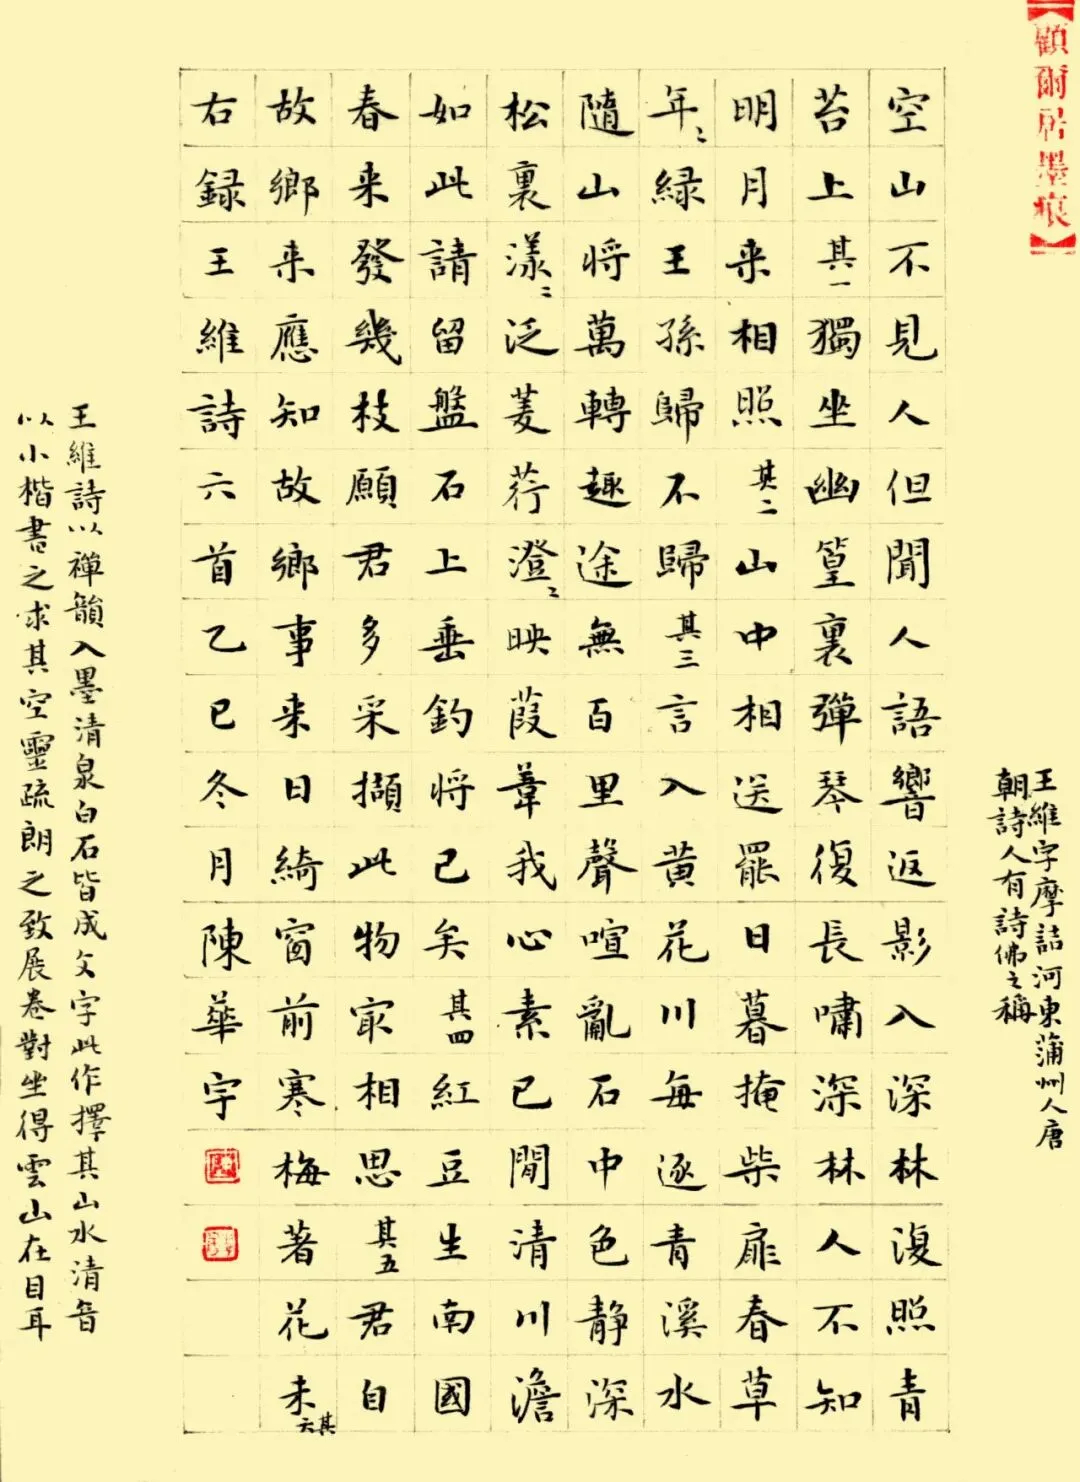 【顧爾居墨痕】
王維字摩詰河東蒲州人唐
朝詩人有詩佛之稱
空山不見人但聞人語響返影入深林復照青
苔上其一獨坐幽篁裏彈琴復長嘯深林人不知
明月来相照其二山中相送罷日暮掩柴扉春草
年〻緑王孫歸不歸其三言入黄花川每逐青溪水
隨山将萬轉趣途無百里聲喧亂石中色静深
松裏漾〻泛菱荇澄〻映葭葦我心素已閒清川澹
如此請留盤石上垂釣将已矣其四紅豆生南國
春来發幾枝願君多采擷此物㝡相思其五君自
故鄉来應知故鄉事来日綺窗前寒梅著花未其六
右録王維詩六首乙巳冬月陳華宇
王維詩以禪韻入墨清泉白石皆成文字此作擇其山水清音
以小楷書之求其空靈疏朗之致展卷對坐得雲山在目耳